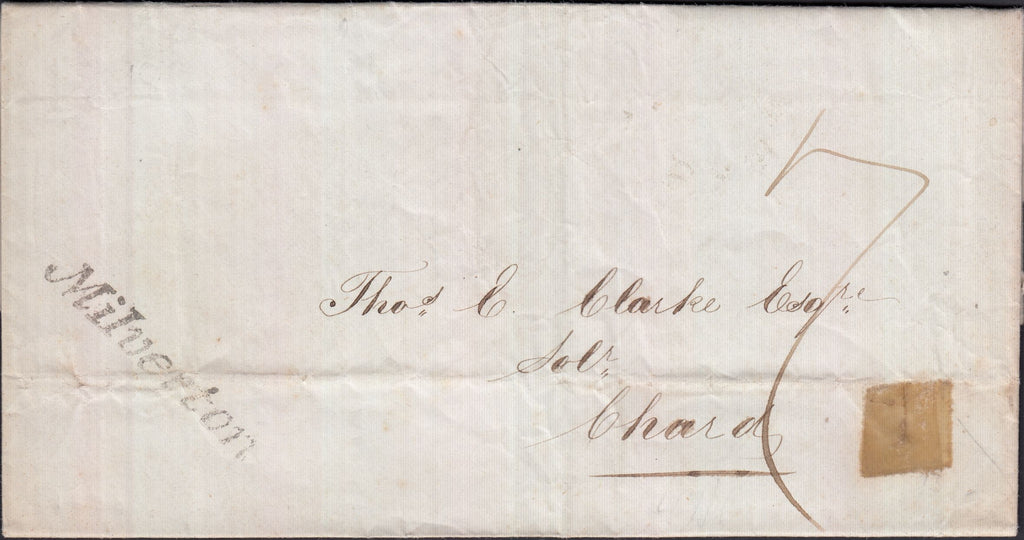 7
Thos. E. Clarke Esqre
Solr.
Chard
Milverton